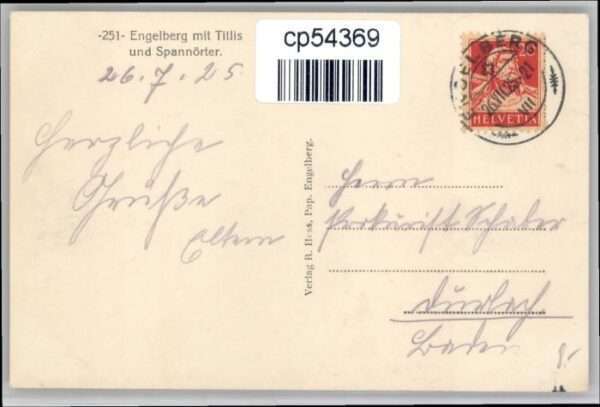 -251- Engelberg mit Titlis
und Spannörter.
26.7.25
cp54369
ENGELBERG
HELVETIA
Herzliche
Grüße
Eltern
Verlag R. Hess, Pap. Engelberg.
Herrn
Prokurist Schaber
Durlach
Baden